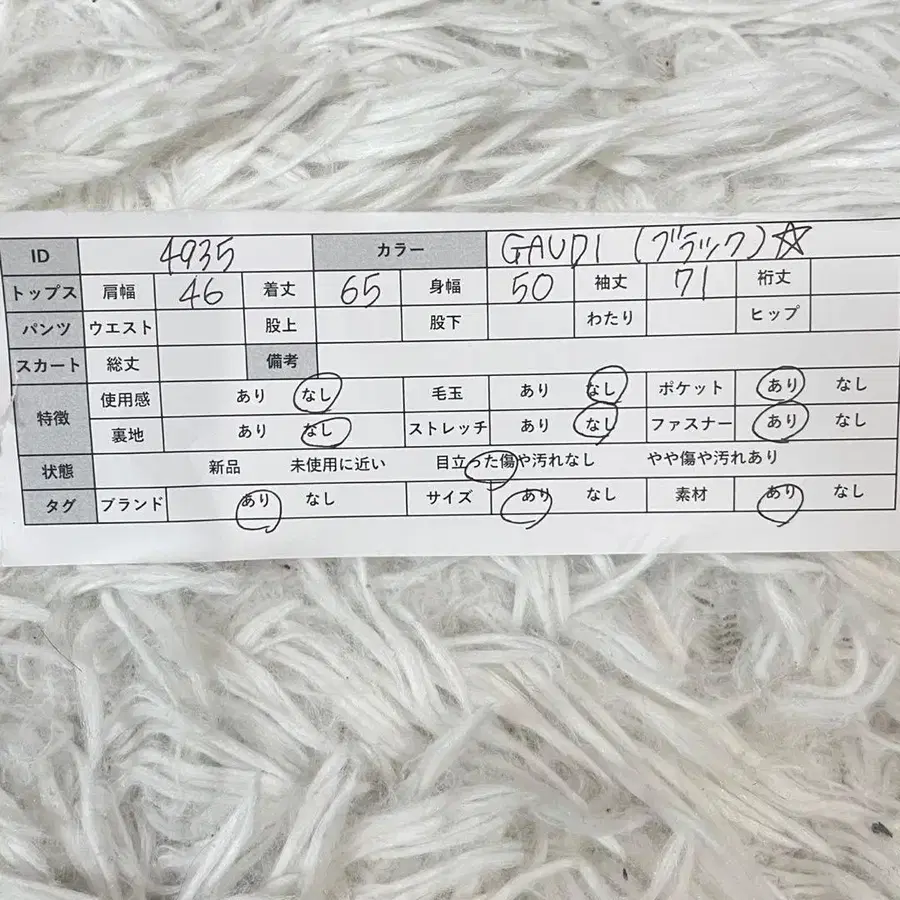 ID 4935 カラー GAUDI (ブラック)☆
トップス 肩幅 46 着丈 65 身幅 50 袖丈 71 裄丈
パンツ ウエスト 股上 股下 わたり ヒップ
スカート 総丈 備考
特徴 使用感 あり なし 毛玉 あり なし ポケット あり なし
裏地 あり なし ストレッチ あり なし ファスナー あり なし
状態 新品 未使用に近い 目立った傷や汚れなし やや傷や汚れあり
タグ ブランド あり なし サイズ あり なし 素材 あり なし